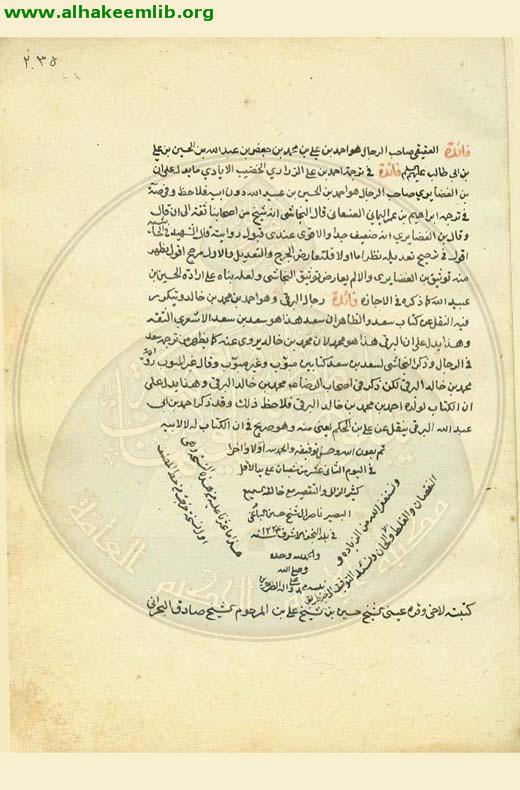 www.alhakeemlib.org
٢٣٥
فائدة العقيقي صاحب الرجال هو احمد بن علي بن محمد بن جعفر بن عبد الله بن الحسين بن علي
بن ابي طالب فائدة في ترجمة احمد بن علي الرازي الخضيب الايادي ما يدل على ان
بن الغضايري صاحب الرجال هو احمد بن الحسين بن عبيد الله دون ابيه فلاحظ
في ترجمة ابراهيم بن عمر اليماني الصنعاني قال النجاشي انه شيخ من اصحابنا ثقة الى ان قال
وقال بن الغضايري انه ضعيف جدا والاقوى عندي قبول روايته قال الشهيد
اقول في ترجيح تعديله نظر اما اولا فلتعارض الجرح والتعديل والاول مرجح اقول يظهر
منه توثيق بن الغضايري والا لم يعارض توثيق النجاشي ولعله بناه على ارادة الحسين بن
عبيد الله كما ذكره في الاجازه فائدة رجال البرقي وهو احمد بن محمد بن خالد ويتكرر
فيه النقل عن كتاب سعد والظاهر ان سعد هذا هو سعد بن سعد الاشعري الثقة
وهذا يدل على ان البرقي هذا هو محمد لان محمد بن خالد يروي عنه كما يظهر من ترجمة سعد
في الرجال وذكر النجاشي لسعد بن سعد كتابين مبوّب وغير مبوّب وقال غير المبوب رواية
محمد بن خالد البرقي لكن ذكر في اصحاب الرضا محمد بن خالد البرقي وهذا يدل على
ان الكتاب لولده احمد بن محمد بن خالد البرقي فلاحظ ذلك وقد ذكر احمد بن ابي
عبد الله البرقي ينقل عن علي بن الحكم يعني منه وهو صريح في ان الكتاب له لا لابيه
تم بعون الله وحسن توفيقه والحمد لله اولا واخرا
في اليوم الثاني عشر من شعبان على يد الاقل
كثير الزلل والتقصير مع خالقه السميع
البصير ناصر ال شيخ حسن
في بلد النجف الاشرف سنة
والحمد لله وحده
وصلى الله
على محمد واله الطاهرين
ونستغفر الله من الزيادة و
النقصان والغلط والالحان ونسئله التوفيق
كتبته لاخي وقرة عيني شيخ حسين بن شيخ علي بن المرحوم شيخ صادق البحراني